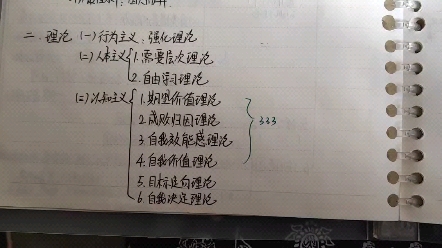 二、理论 (一)行为主义:强化理论
(二)人本主义 1.需要层次理论
2.自由学习理论
(三)认知主义 1.期望价值理论
2.成败归因理论
3.自我效能感理论
4.自我价值理论
333
5.目标定向理论
6.自我决定理论